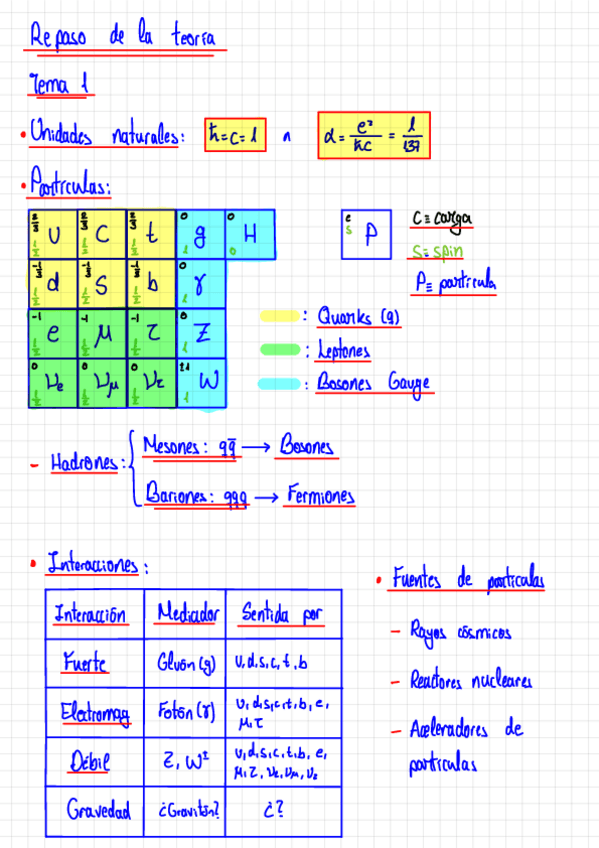 Repaso de la teoría
Tema 1
• Unidades naturales: ħ=c=1 ∧ α = e²/ħc = 1/137
• Partículas:
2/3 u 1/2 2/3 c 1/2 2/3 t 1/2 0 g 1 0 H 0
-1/3 d 1/2 -1/3 s 1/2 -1/3 b 1/2 0 γ 1
-1 e 1/2 -1 μ 1/2 -1 τ 1/2 0 Z 1
0 νe 1/2 0 νμ 1/2 0 ντ 1/2 ±1 W 1
c s P
C≡ carga
S≡ spin
P≡ partícula
: Quarks (q)
: Leptones
: Bosones Gauge
- Hadrones: { Mesones: qq̄ → Bosones
Bariones: qqq → Fermiones
• Interacciones:
Interacción Mediador Sentida por
Fuerte Gluón (g) u,d,s,c,t,b
Electromag Fotón (γ) u,d,s,c,t,b,e,
μ,τ
Débil Z, W± u,d,s,c,t,b,e,
μ,τ,νe,νμ,ντ
Gravedad ¿Gravitón? ¿?
• Fuentes de partículas
- Rayos cósmicos
- Reactores nucleares
- Aceleradores de
partículas